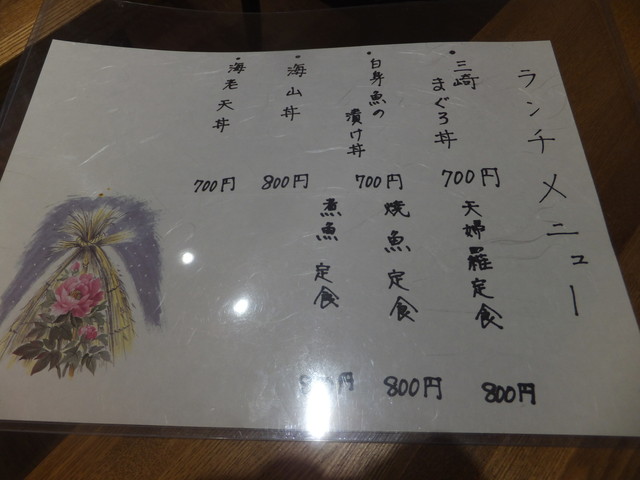 ランチメニュー
三崎
まぐろ丼
700円
白身魚の
漬け丼
700円
海山丼
800円
海老天丼
700円
天婦羅定食
800円
焼魚定食
800円
煮魚定食